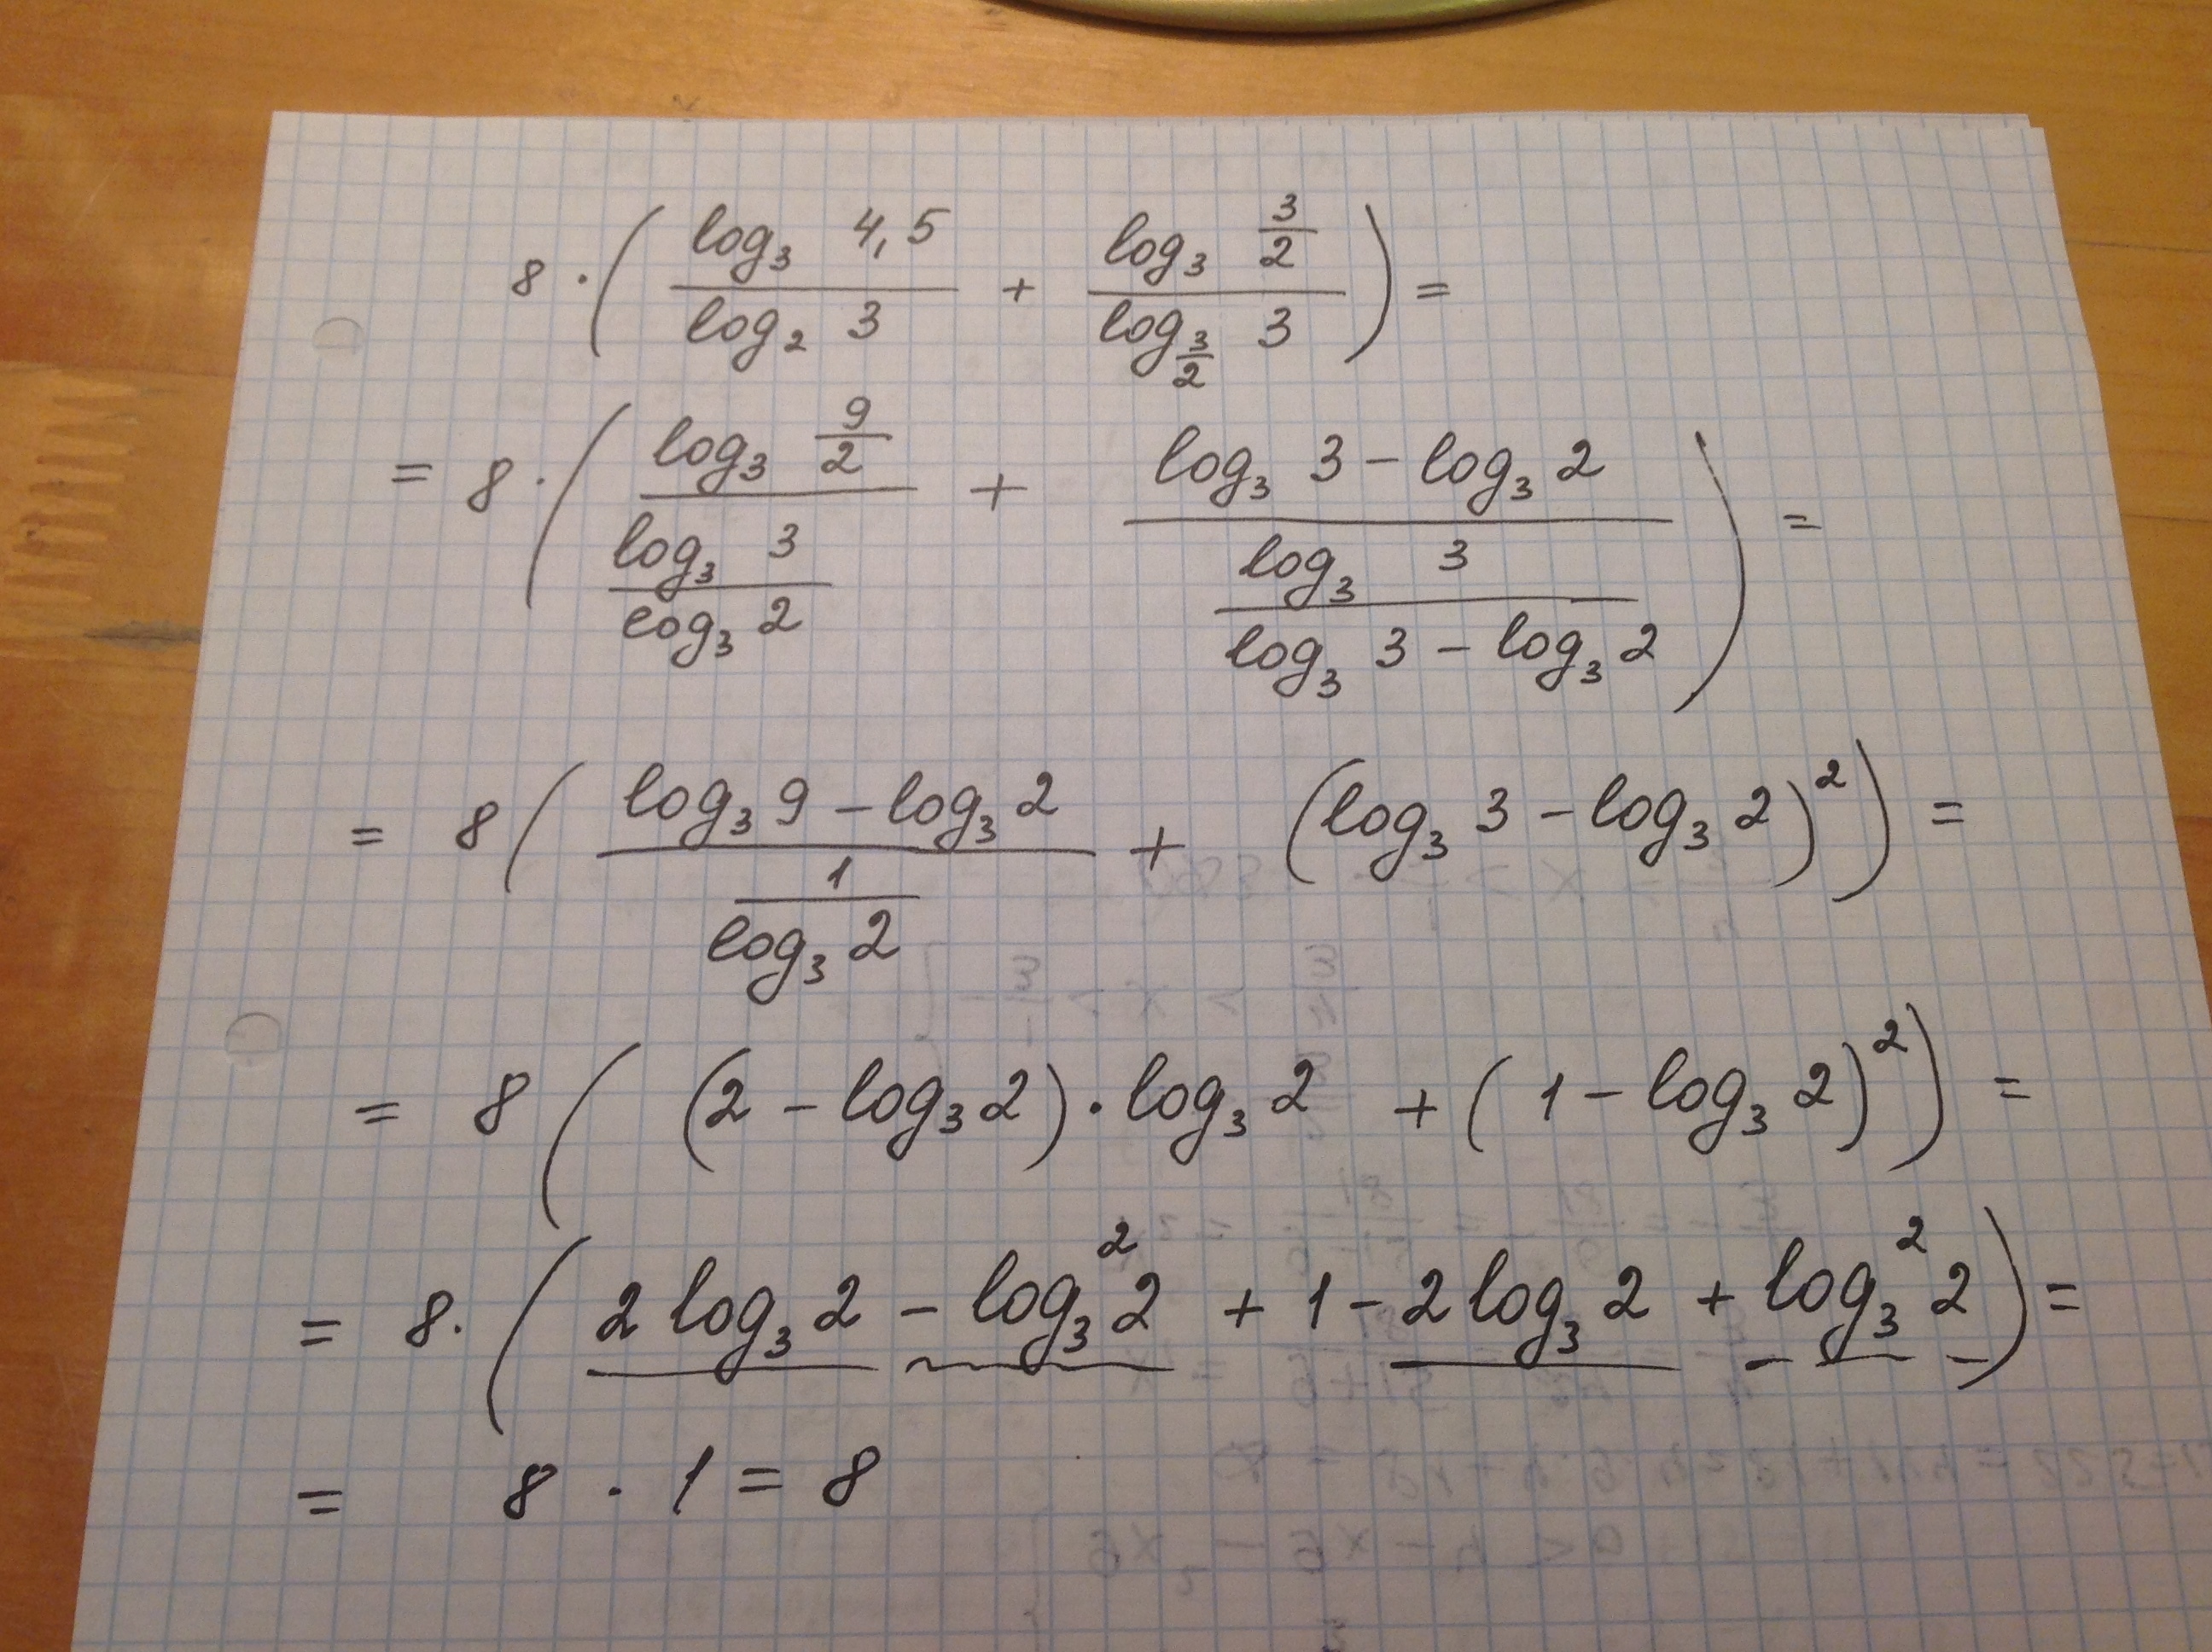 8 · ( \frac{log_3 4,5}{log_2 3} + \frac{log_3 \frac{3}{2}}{log_{\frac{3}{2}} 3} ) =
= 8 · ( \frac{log_3 \frac{9}{2}}{\frac{log_3 3}{log_3 2}} + \frac{log_3 3 - log_3 2}{\frac{log_3 3}{log_3 3 - log_3 2}} ) =
= 8 ( \frac{log_3 9 - log_3 2}{\frac{1}{log_3 2}} + (log_3 3 - log_3 2)^2 ) =
= 8 ( (2 - log_3 2) · log_3 2 + (1 - log_3 2)^2 ) =
= 8 · ( 2 log_3 2 - log_3^2 2 + 1 - 2 log_3 2 + log_3^2 2 ) =
= 8 · 1 = 8